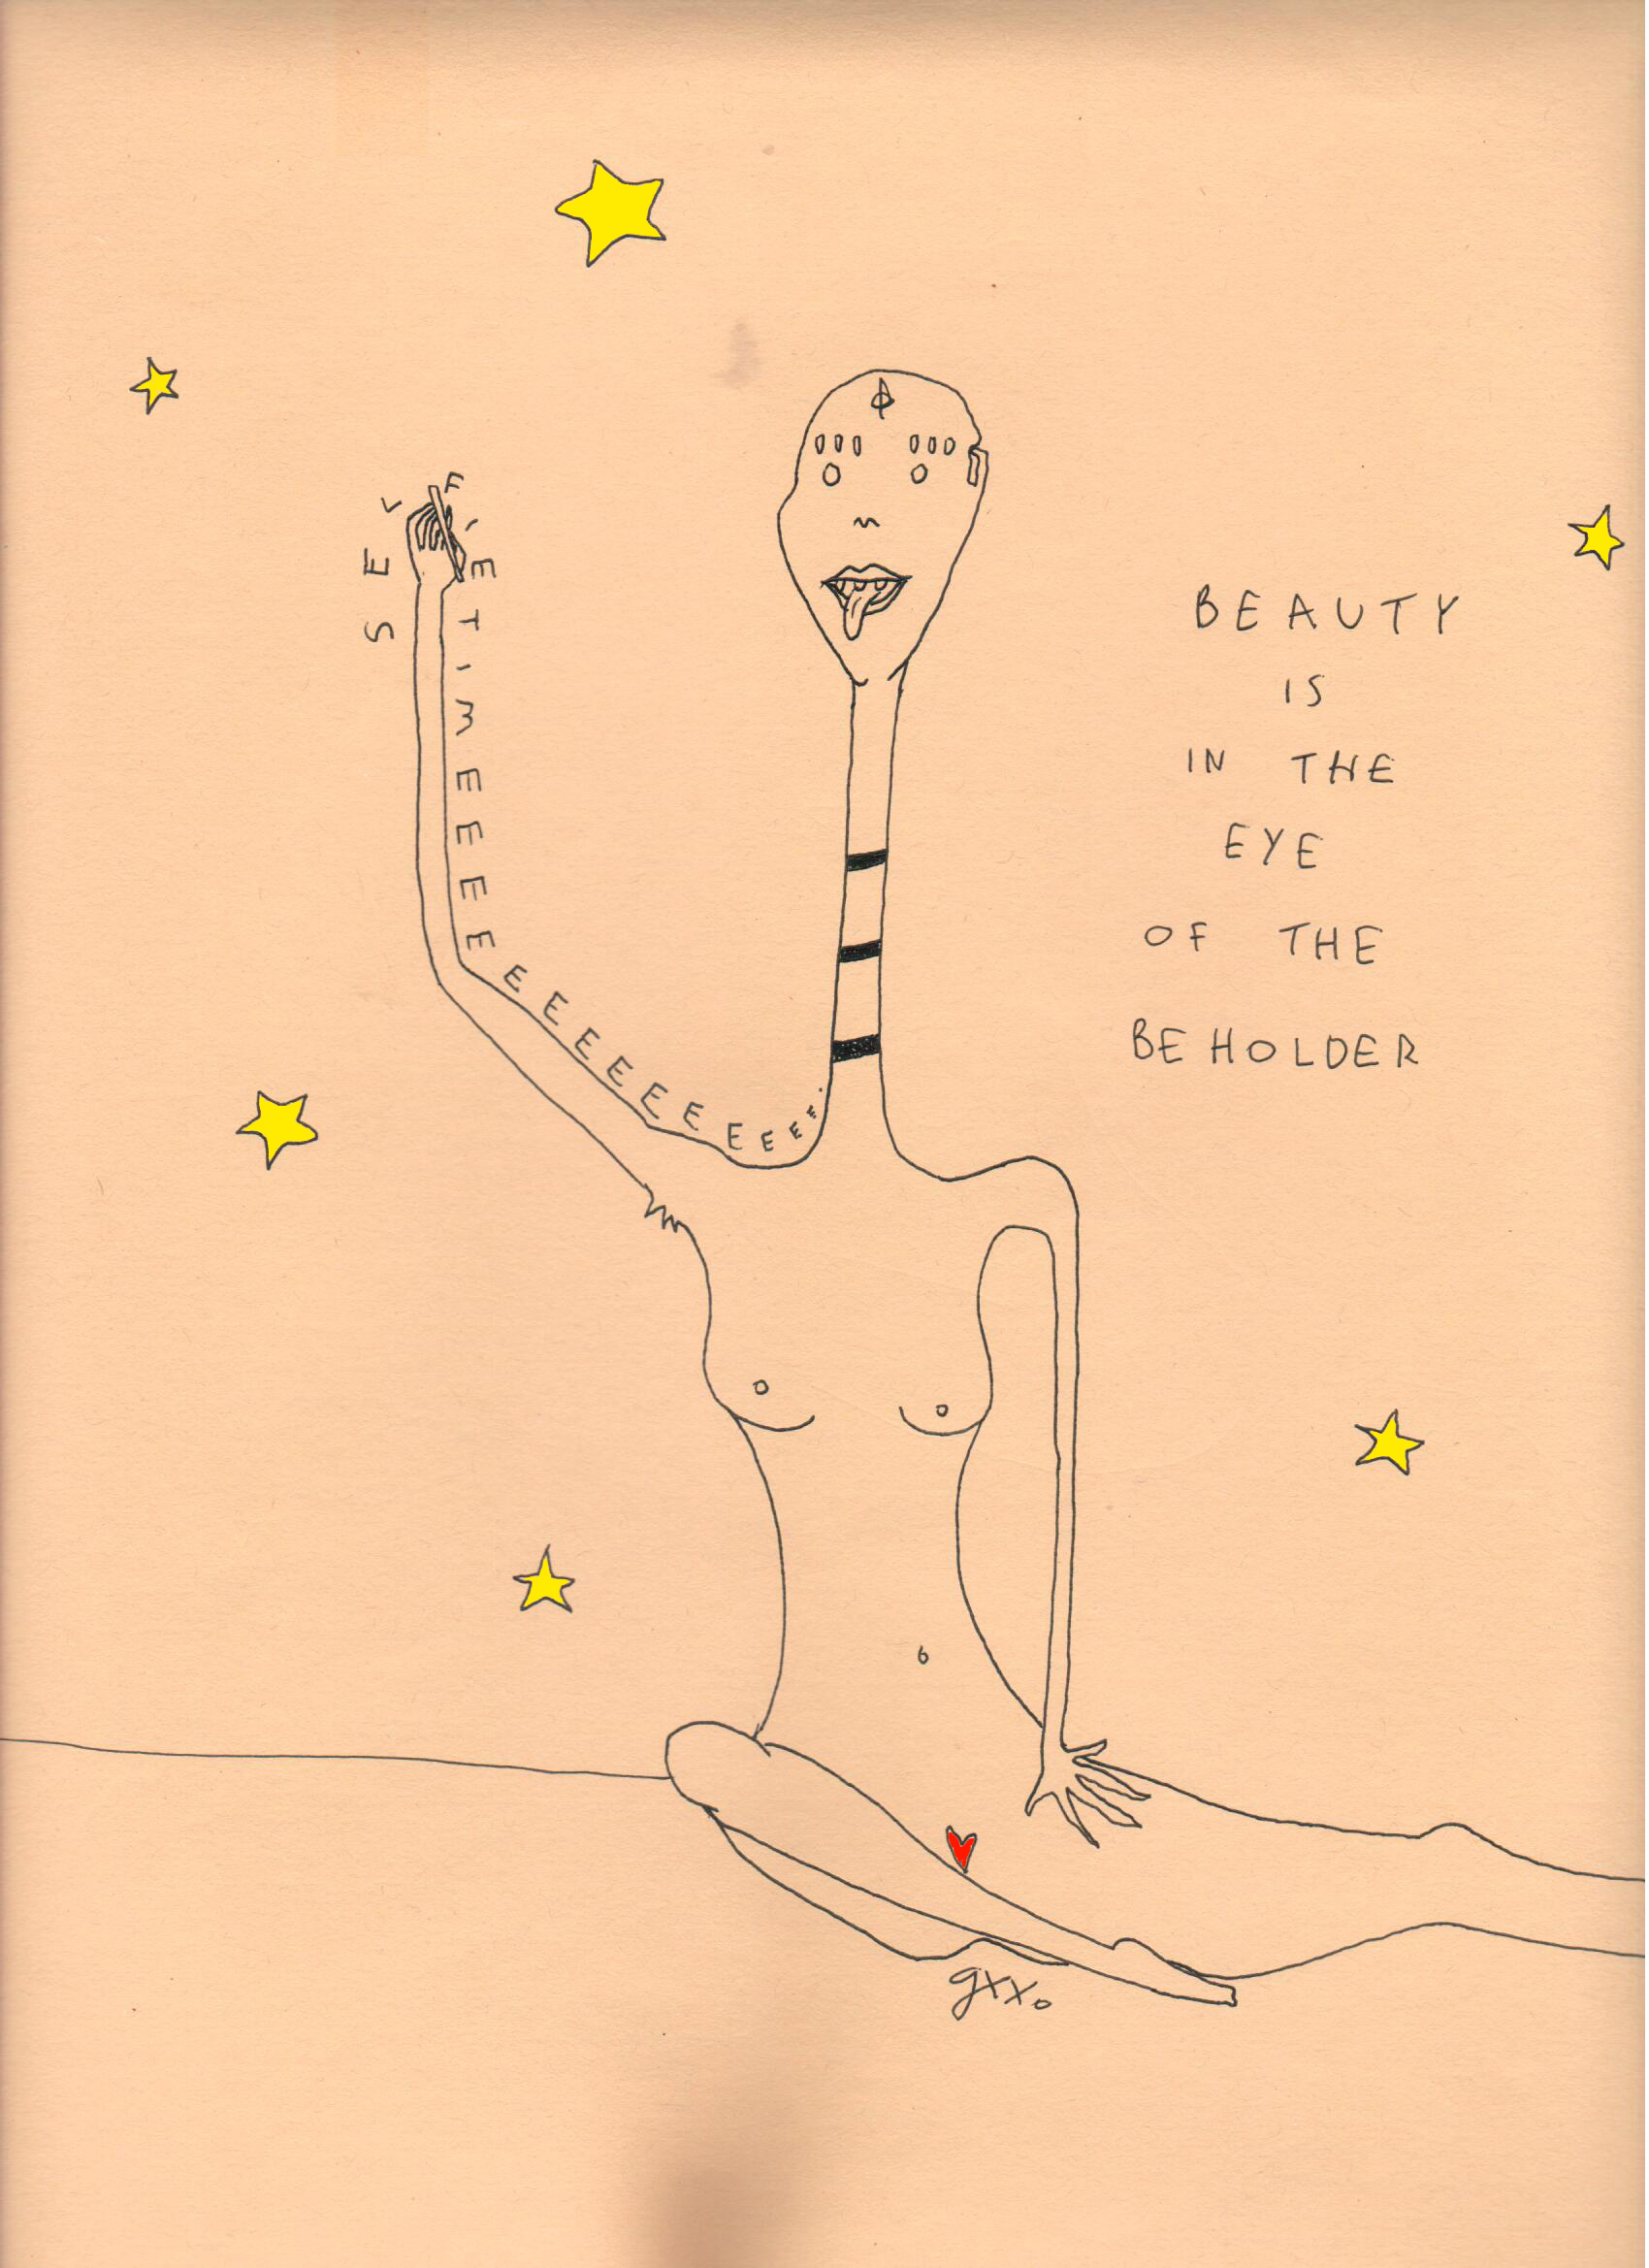 SELFIE TIMEEEEEEEEEEEEEE.
BEAUTY
IS
IN THE
EYE
OF THE
BEHOLDER
gxxo